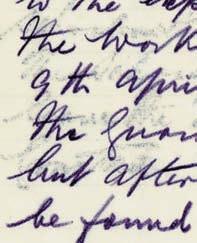 to the
the work
9th Apri
the
but after
be found